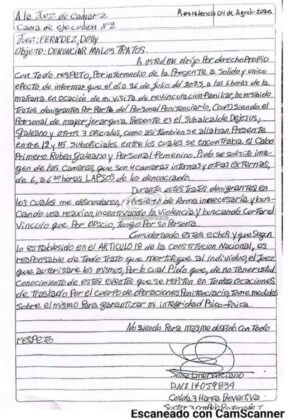 Resistencia 04 de Agosto 2025
A la Juez de Camara
Cama de ejecucion N°2
Juez: FERNDEZ, DOlly
Objeto: DENUNCIAR MALOS TRATOS
A usted me dirijo por derecho Propio
con Todo respeto, Por intermedio de la Presente a solo de y unico
efecto de informar que el dia 26 de Julio del 2025, a las 6 horas de la
mañana en ocacion de mi visita de penitenciaria Familiar, he recibido
Tratos denigrantes Por Parte del Personal Penitenciario, Corposiendo el
Personal de mayor jerarquia Presente es el Subalcaide Dejesus,
Galeano y otros 2 oficiales, como asi tambien se allaban Presente
entre 12 y 15 suboficiales entre los cuales se encontraba el Cabo
Primero Ruben Galeano y Personal Femenino. Pido se solicite ima
gen de las camaras, que son 4 camaras internas y otras externas,
de 6, a 6:30 horas LAPSOS de lo denunciado.
Durante estos Tratos denigrantes en
los cuales me desnudaron, de forma innecesaria, y bus-
cando una reaxion, insentivando la Violencia y buscando Cortar el
Vinculo que Por oficio, Tengo Por so Persona.
Considerando estos echos y que segun
lo establesido en el ARTICULO 18 de la CONSTITUCION Nacional, es
responsable de Todo Trato que mortifique al individuo, el Juez
que autorisare los mismos, Por lo cual Pido que, de no Tener usted
Conocimiento de estos eventos que se repiten en Todas Ocaciones
de Traslado Por el cuerpo de operaciones Penitenciario, Tome medidas
sobre el mismo Para garantizar mi integridad Psico-Fisica.
No siendo Para mas me despido con Todo
respeto
Sena Emerenciano
DNI 14.059.834
Celda 3 Harea Preventiva
Escaneado con CamScanner